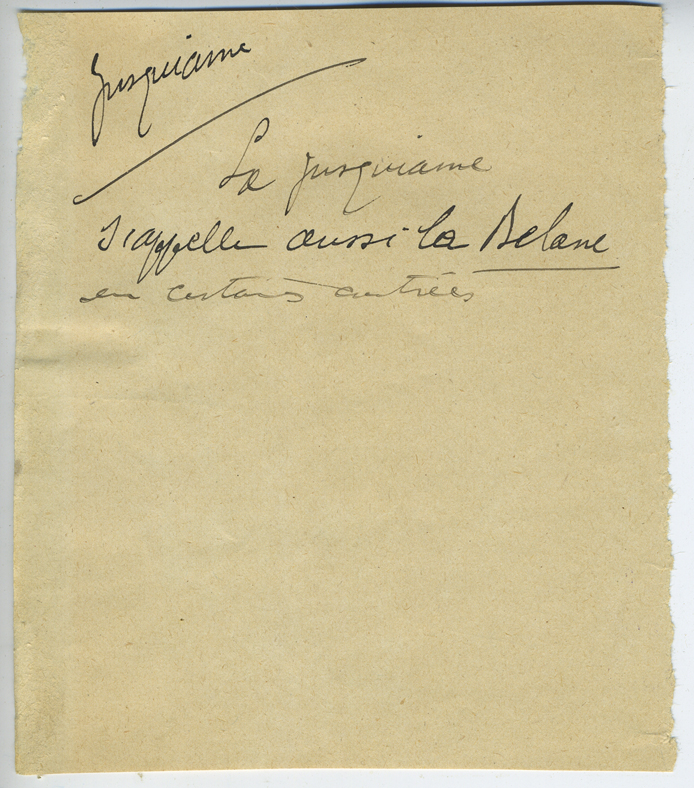 Jusquiame
La Jusquiame
s'appelle aussi la Belane
en certains contrées